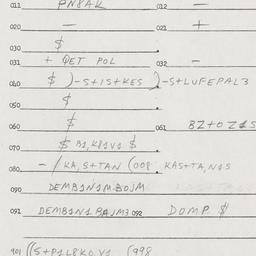 011 PN8AK 012 —
020 — 021 +
030 $
031 + QET POL 032 —
040 $ )-S+IS+KES )-S+LUFEPAL3
050 $
060 $ 061 BZ+OZ1S
070 $ B1,K81V1 $
080 - /KA,S+TAN (008 KAS+TA,N1S
090 DEMB1N1M.BOJM
091 DEMB1N1 BAJM3 092 DOMP $
901 ((S+P1L8KO,V1 (998